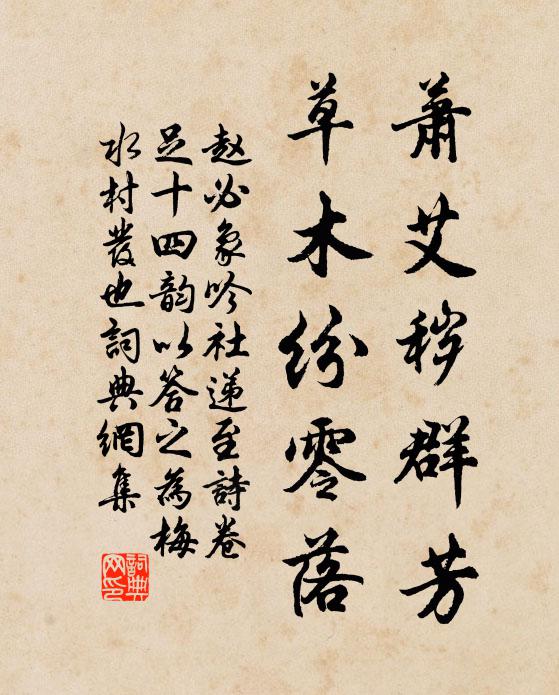 蕭艾秽群芳
草木纷零落
赵必象吟社递至詩卷
足十四韵以答之為梅
水村發也詞典網集
詞典网印